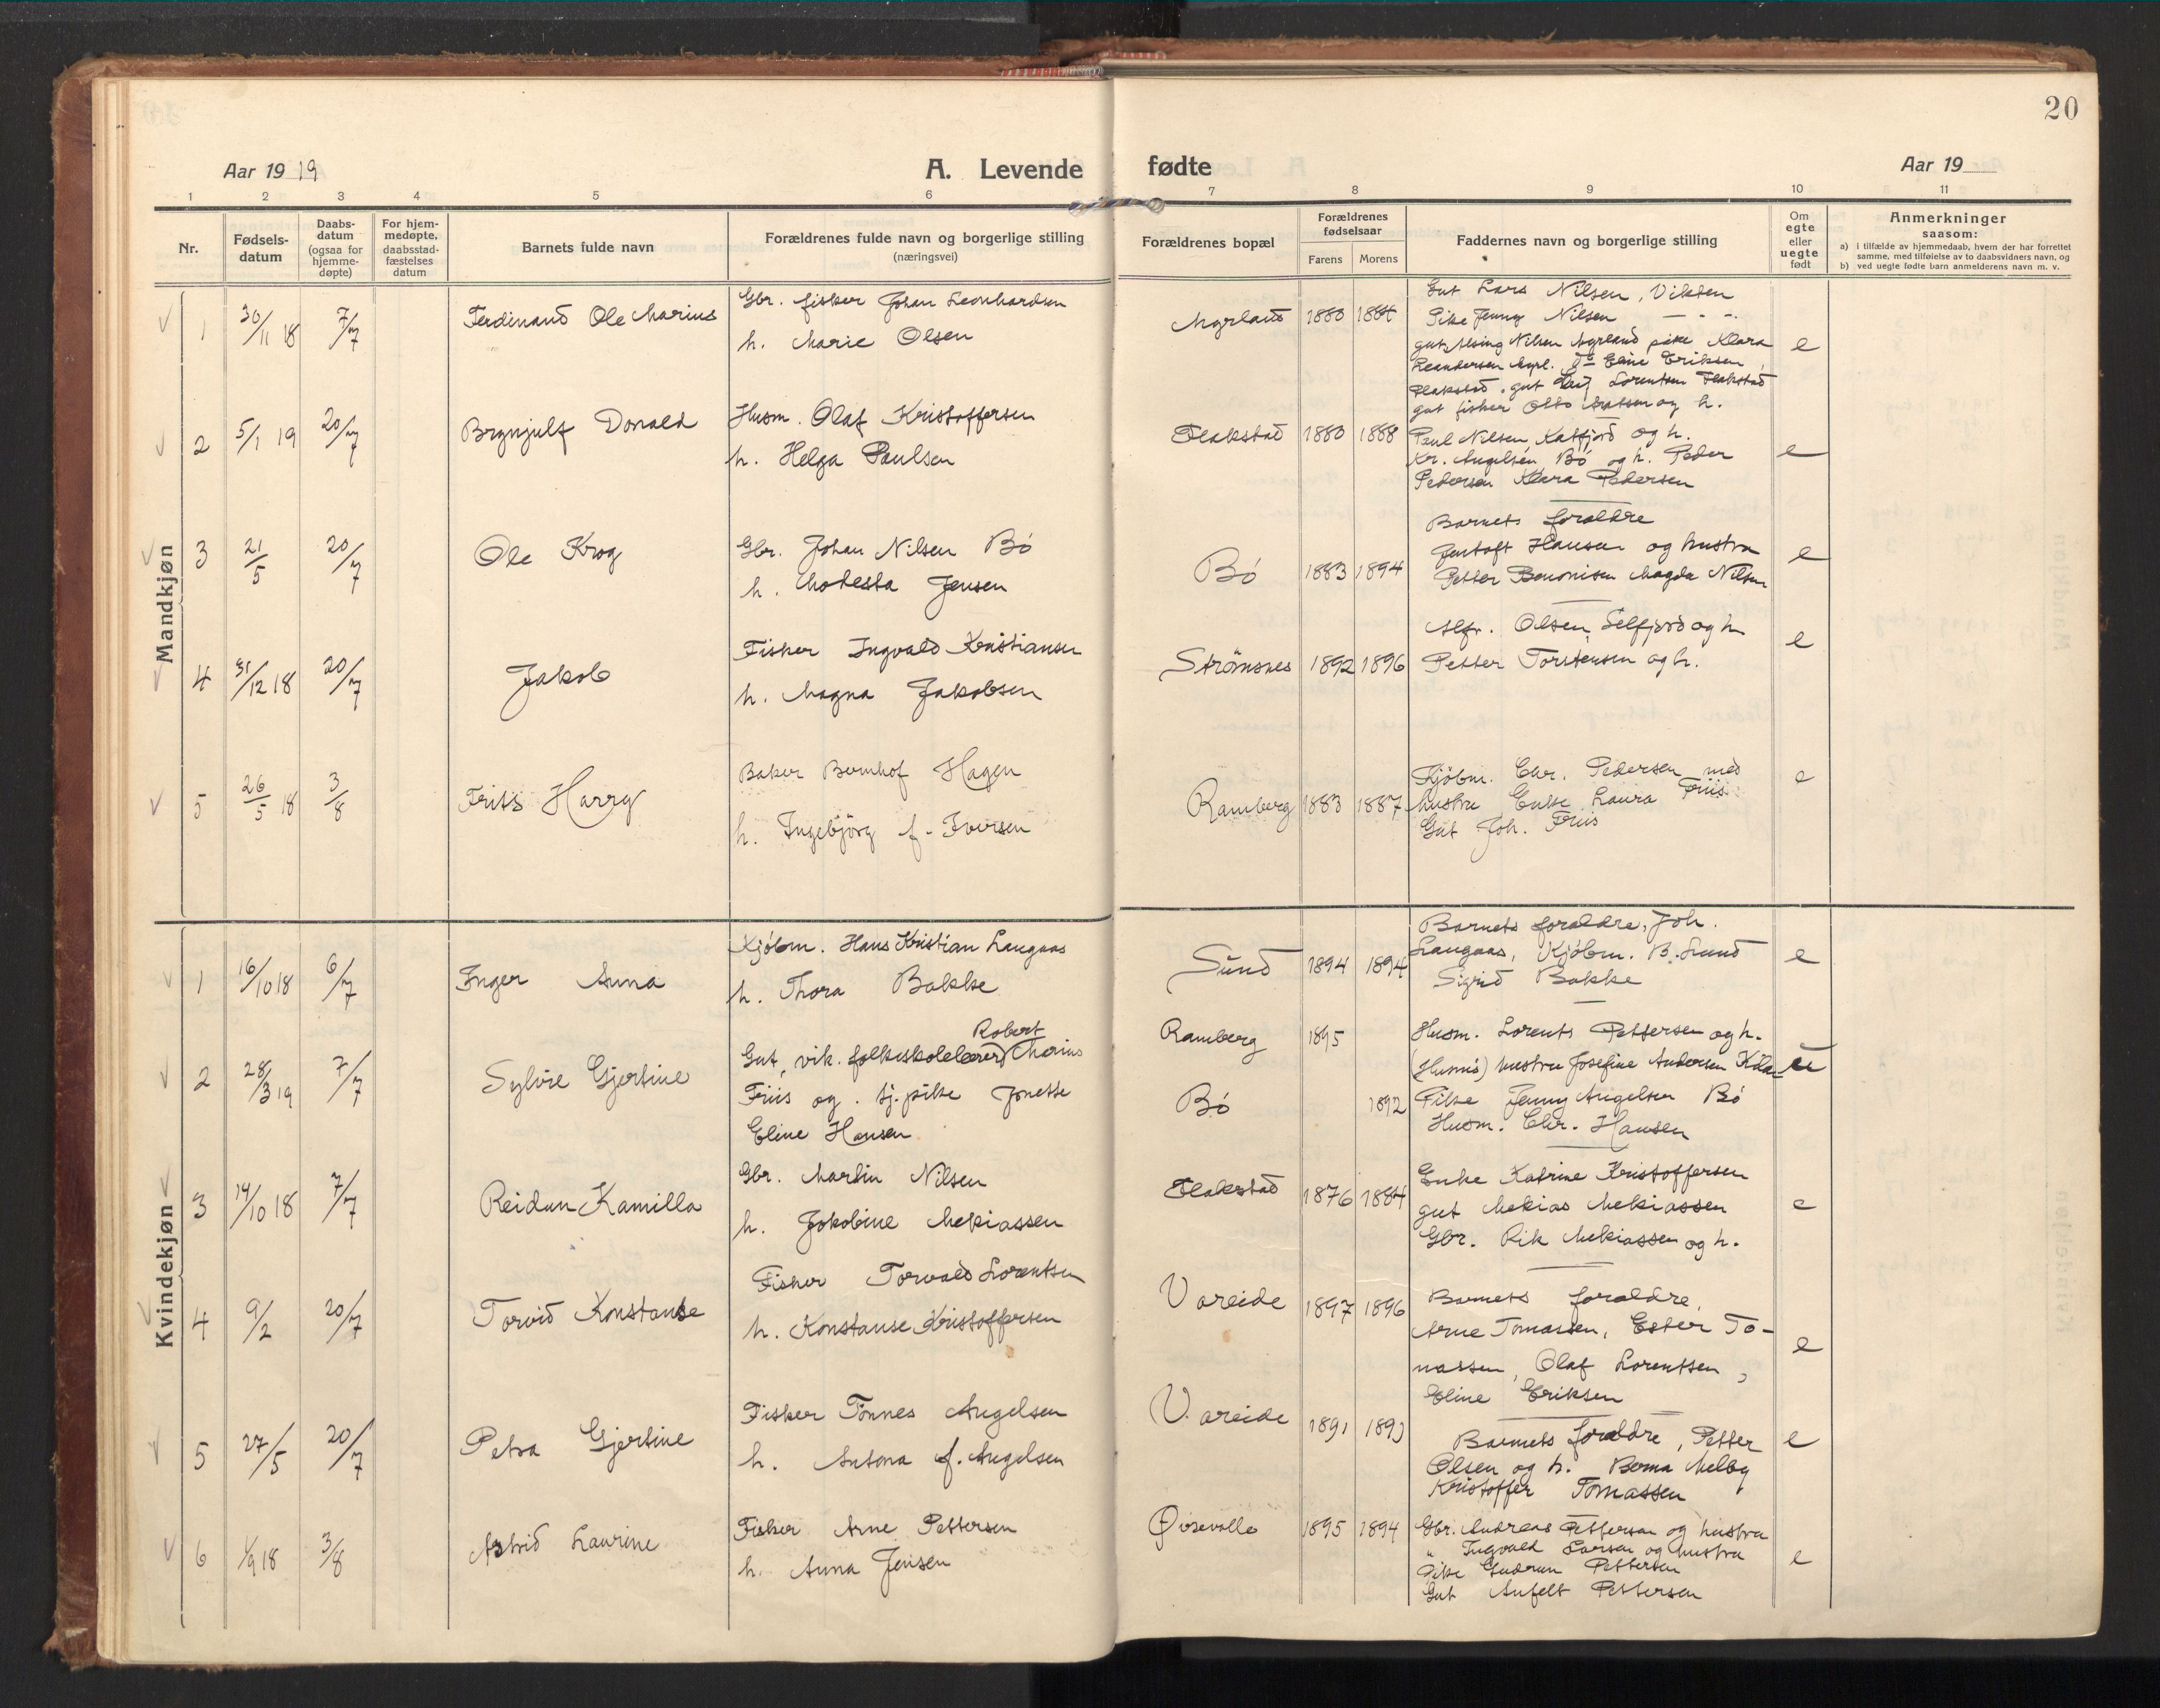 20
Aar 19 19
A. Levende fødte
Aar 19
1 2 3 4 5 6 7 8 9 10 11
Nr.
Fødsels-
datum
Daabs-
datum
(ogsaa for
hjemme-
døpte)
For hjem-
medøpte,
daabsstad-
fæstelses
datum
Barnets fulde navn
Forældrenes fulde navn og borgerlige stilling
(næringsvei)
Forældrenes bopæl
Forældrenes
fødselsaar
Farens Morens
Faddernes navn og borgerlige stilling
Om
egte
eller
uegte
født
Anmerkninger
saasom:
a) i tilfælde av hjemmedaab, hvem der har forrettet
samme, med tilføielse av to daabsvidners navn, og
b) ved uegte fødte barn anmelderens navn m. v.
Mandkjøn
1 30/11 18 7/7 Ferdinand Ole Marius
Gbr. fisker Johan Leonhardsen
h. Marie Olsen
Myrland 1880 1884
Gut Lars Nilsen, Vikten
Pike Jenny Nilsen — " —
gut Nilsen Myrland pike Klara
Leandersen Myrl. do Eline Eriksen,
Flakstad. gut Lorentsen Flakstad
e
2 5/1 19 20/7 Brynjulf Donald
Husm. Olaf Kristoffersen
h. Helga Paulsen
Flakstad 1880 1888
gut fisker Otto og h.
Paul Nilsen, Katfjord og h.
Kr. Angelsen Bö og h. Peder
Pedersen Klara Pedersen
e
3 21/5 20/7 Ole Krog
Gbr. Johan Nilsen Bö
h. Modesta Jensen
Bö 1883 1894
Barnets forældre
Jentoft Hansen og hustru
Petter Benonisen Magda Nilsen
e
4 31/12 18 20/7 Jakob
Fisker Ingvald Kristiansen
h. Magna Jakobsen
Strömsnes 1892 1896
Alfr. Olsen, Selfjord og h.
Petter Torstensen og h.
e
5 26/5 18 3/8 Frits Harry
Baker Bernhof Hagen
h. Ingebjörg f. Iversen
Ramberg 1883 1887
Kjöbm. Chr. Pedersen med
hustru Enke Laura Friis
Gut Joh. Friis
e
Kvindekjøn
1 16/10 18 6/7 Inger Anna
Kjöbm. Hans Kristian Langaas
h. Thora Bakke
Sund 1894 1894
Barnets forældre, Joh.
Langaas, Kjöbm. B. Lund
Sigrid Bakke
e
2 28/3 19 7/7 Sylvie Gjertine
Robert
Gut, vik. folkeskolelærer Marius
Friis og . tj. pike Jonette
Eline Hansen
Ramberg 1895
Bö 1892
Husm. Lorents Pettersen og h.
(Husm's) hustru Josefine Andersen
Pike Jenny Angelsen Bö
Husm. Chr. Hansen
3 14/10 18 7/7 Reidun Kamilla
Gbr. Martin Nilsen
h. Jakobine Mekiassen
Flakstad 1876 1884
Enke Katrine Kristoffersen
gut Mekias Mekiassen
Gbr. Rik Mekiassen og h.
e
4 9/2 20/7 Torvid Konstanse
Fisker Torvald Lorentsen
h. Konstanse Kristoffersen
Vareide 1897 1896
Barnets forældre,
Arne Tomassen, Ester To-
massen, Olaf Lorentsen,
Eline Eriksen
e
5 27/5 20/7 Petra Gjertine
Fisker Tönnes Angelsen
h. Antona f. Angelsen
Vareide 1891
Barnets forældre, Petter
Olsen og h. Berna Melby
Kristoffer Tomassen
e
6 1/9 18 3/8 Astrid Laurine
Fisker Arne Pettersen
h. Anna Jensen
1895 1894
Gbr. Andreas Pettersen og hustru
" Ingvald Larsen og hustru
Pike Gudrun Pettersen
Gut Anfelt Pettersen
e